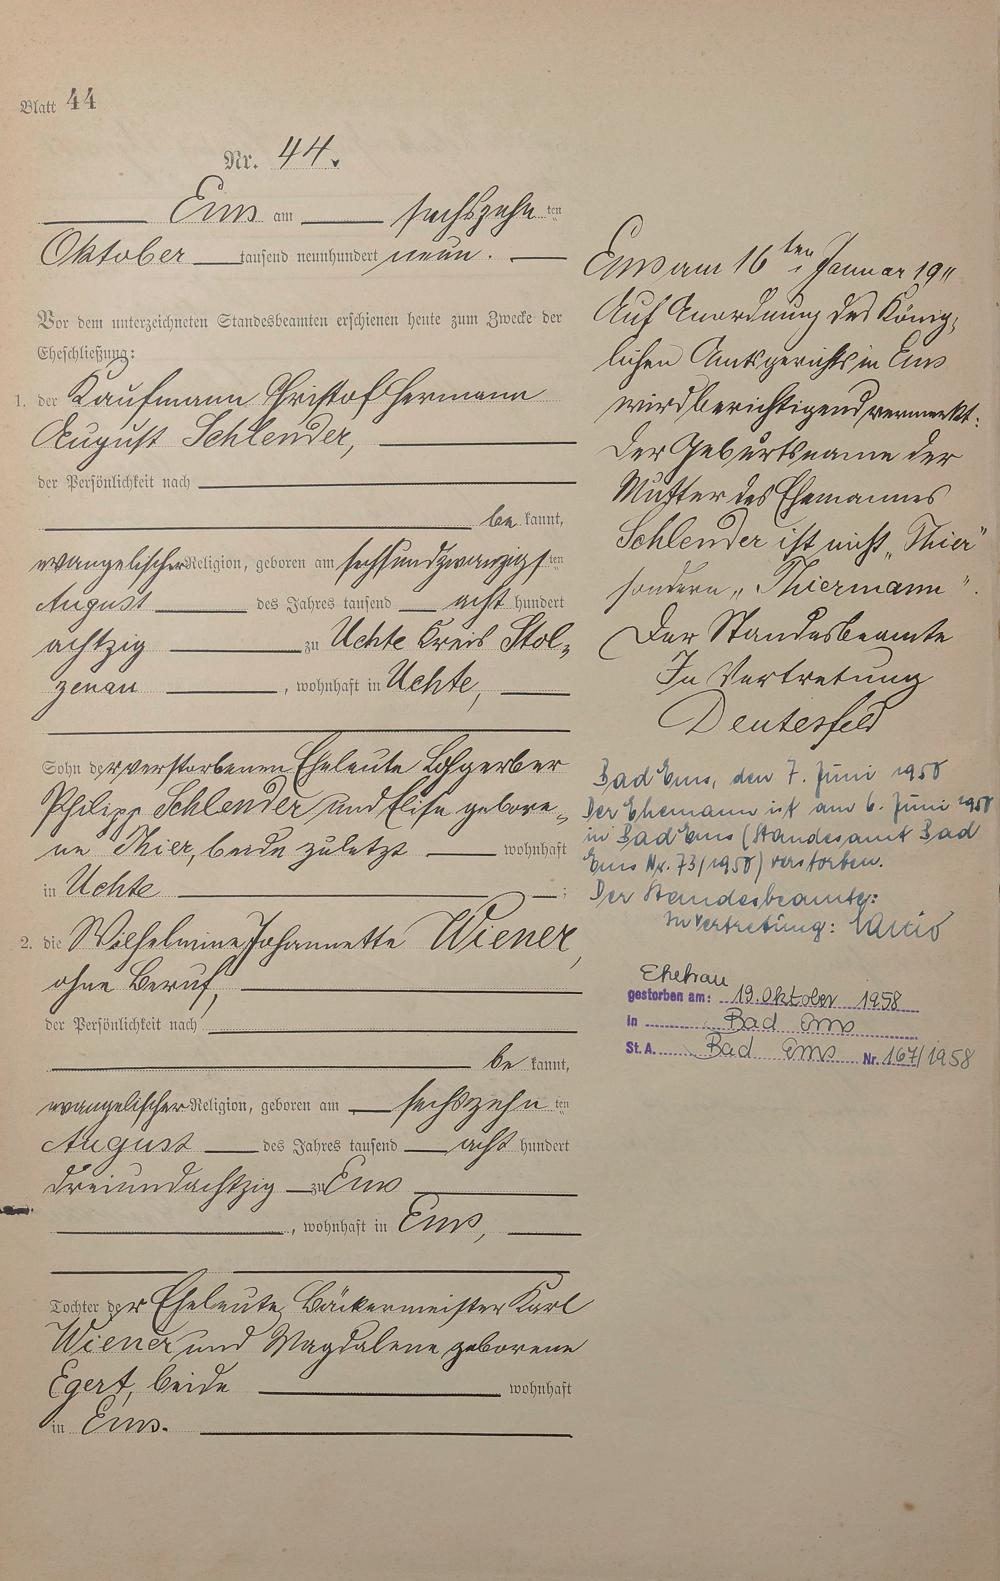 Blatt 44
Nr. 44.
Ems am sechszehn ten
Oktober tausend neunhundert neun.
Vor dem unterzeichneten Standesbeamten erschienen heute zum Zwecke der
Eheschließung:
1. der Kaufmann Christof Hermann
August Schlender,
der Persönlichkeit nach
be kannt,
evangelischer Religion, geboren am sechsundzwanzigsten
August des Jahres tausend acht hundert
achtzig zu Uchte Kreis Stol-
zenau, wohnhaft in Uchte,
Sohn der verstorbenen Eheleute Lohgerber
Philipp Schlender und Elise gebore-
ne Thier, beide zuletzt wohnhaft
in Uchte ;
2. die Wilhelmine Johannette Wiener,
ohne Beruf,
der Persönlichkeit nach
be kannt,
evangelischer Religion, geboren am sechszehn ten
August des Jahres tausend acht hundert
dreiundachtzig zu Ems
, wohnhaft in Ems,
Tochter der Eheleute Bäckermeister Karl
Wiener und Magdalene geborene
Egert, beide wohnhaft
in Ems.
Ems am 16ten Januar 1911
Auf Anordnung des König-
lichen Amtsgerichts in Ems
wird berichtigend vermerkt:
Der Geburtsname der
Mutter des Ehemannes
Schlender ist nicht „Thier"
sondern „Thiermann".
Der Standesbeamte
In Vertretung
Deutesfeld
Bad Ems, den 7. Juni 1950
Der Ehemann ist am 6. Juni 1950
in Bad Ems (Standesamt Bad
Ems Nr. 73/1950) verstorben.
Der Standesbeamte:
In Vertretung:
Ehefrau
gestorben am: 19. Oktober 1958
in Bad Ems
St. A. Bad Ems Nr. 167/1958